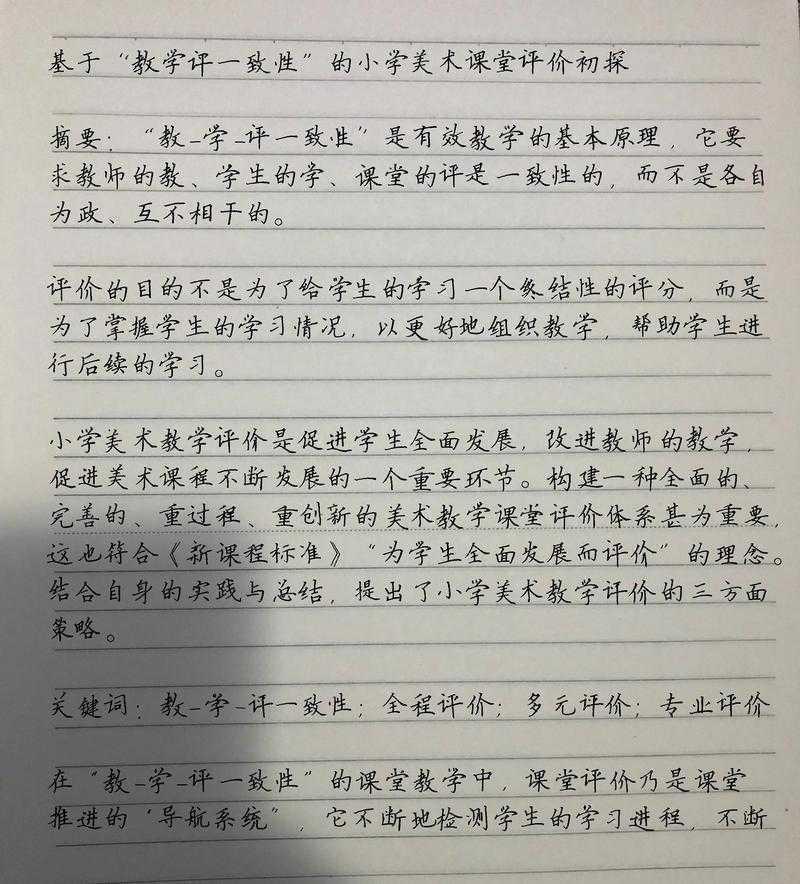 基于“教学评一致性”的小学美术课堂评价初探
摘要：“教-学-评一致性”是有效教学的基本原理，它要
求教师的教、学生的学、课堂的评是一致性的，而不是各自
为政、互不相干的。
评价的目的不是为了给学生的学习一个终结性的评分，而是
为了掌握学生的学习情况，以更好地组织教学，帮助学生进
行后续的学习。
小学美术教学评价是促进学生全面发展，改进教师的教学，
促进美术课程不断发展的一个重要环节。构建一种全面的、
完善的、重过程、重创新的美术教学课堂评价体系甚为重要，
这也符合《新课程标准》“为学生全面发展而评价”的理念。
结合自身的实践与总结，提出了小学美术教学评价的三方面
策略。
关键词：教-学-评一致性；全程评价；多元评价；专业评价
在“教-学-评一致性”的课堂教学中，课堂评价乃是课堂
推进的‘导航系统”，它不断地检测学生的学习进程，不断